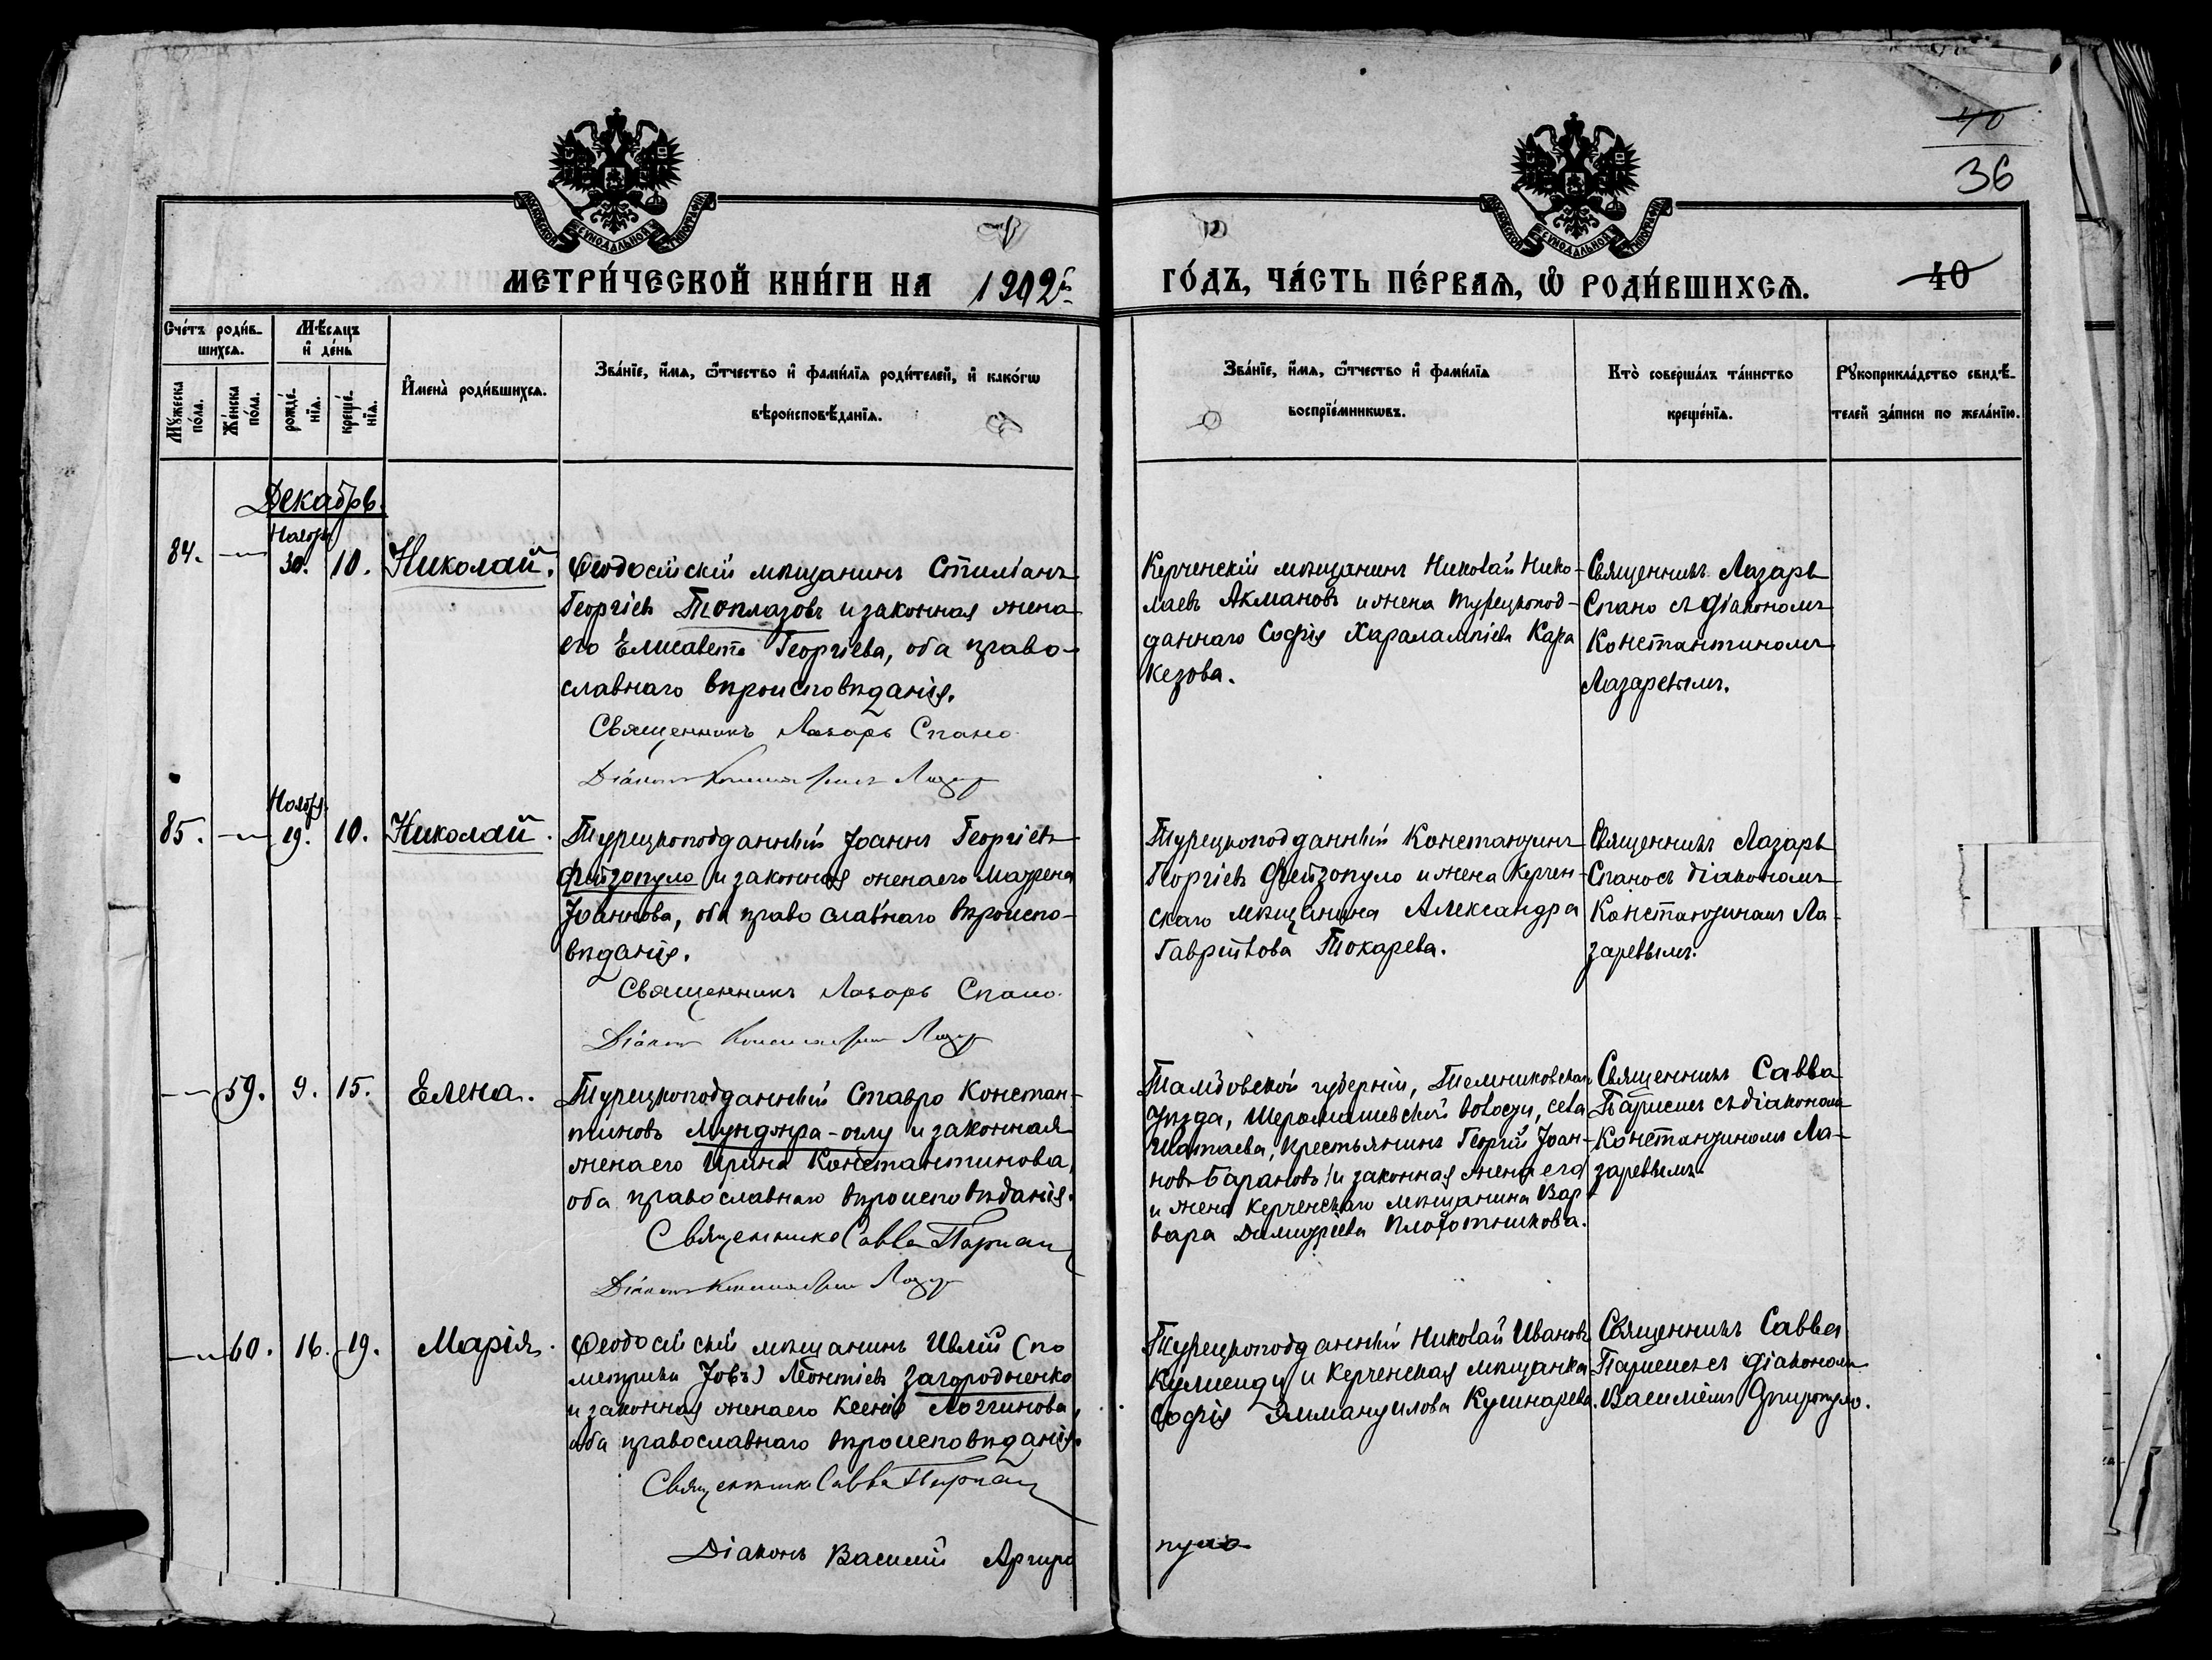 40
36
МОСКОВСКОЙ СѴНОДАЛЬНОЙ ТИПОГРАФІИ
МОСКОВСКОЙ СѴНОДАЛЬНОЙ ТИПОГРАФІИ
МЕТРИ́ЧЕСКОЙ КНИ́ГИ НА 1902й
ГО́ДЪ, ЧА́СТЬ ПЕ́РВАѦ, Ѡ҆ РОДИ́ВШИХСѦ. 40
Сче́тъ роди́в-
шихсѧ.
Мꙋ́жеска по́ла.
Же́нска по́ла.
Мѣ́сѧцъ
и҆ де́нь
рожде́-
нїѧ.
креще́-
нїѧ.
И҆мена̀ роди́вшихсѧ.
Зва́нїе, и҆́мѧ, ѻ҆́тчество и҆ фами́лїѧ роди́телей, и҆ како́гѡ
вѣроисповѣ́данїѧ.
Зва́нїе, и҆́мѧ, ѻ҆́тчество и҆ фами́лїѧ
воспрїе́мникѡвъ.
Кто̀ соверша́лъ та́инство
креще́нїѧ.
Рꙋкоприкла́дство свидѣ́-
телей за́писи по жела́нїю.
Декабрь.
Ноябрь
84. — 30. 10. Николай.
Ѳеодосійскій мѣщанинъ Стиліанъ
Георгіевъ Топлазовъ и законная жена
его Елисавета Георгіева, оба право-
славнаго вѣроисповѣданія.
Священникъ Лазарь Спано
Діаконъ Константинъ Лазар
Керченскій мѣщанинъ Николай Нико-
лаевъ Акмановъ и жена турецкопод-
даннаго Софія Харалампіева Кара
Кезова.
Священникъ Лазарь
Спано съ діакономъ
Константиномъ
Лазаревымъ.
Ноября
85. — 19. 10. Николай.
Турецкоподданный Іоаннъ Георгіевъ
Фейзопуло и законная жена его Матрена
Іоаннова, оба православнаго вѣроиспо-
вѣданія.
Священникъ Лазарь Спано
Діаконъ Константинъ Лазар
Турецкоподданный Константинъ
Георгіевъ Фейзопуло и жена Керчен-
скаго мѣщанина Александра
Гаврилова Токарева.
Священникъ Лазарь
Спано съ діакономъ
Константиномъ Ла-
заревымъ.
— 59. 9. 15. Елена.
Турецкоподданный Ставро Констан-
тиновъ Мунджра-оглу и законная
жена его Ирина Константинова,
оба православнаго вѣроисповѣданія.
Священникъ Савва
Діаконъ Константинъ Лазар
Тамбовской губерніи, Темниковскаго
уѣзда, волости, села
крестьянинъ Георгій Іоан-
новъ Барановъ и законная жена его
и жена Керченскаго мѣщанина Вар-
вара Димитріева Плотникова.
Священникъ Савва
съ діакономъ
Константиномъ Ла-
заревымъ.
— 60. 16. 19. Марія.
Ѳеодосійскій мѣщанинъ Ивлій (по
метрикѣ Іовъ) Леонтіевъ Загородненко
и законная жена его Ксенія Логгинова,
оба православнаго вѣроисповѣданія.
Священникъ Савва
Діаконъ Василій Аргиро
пуло
Турецкоподданный Николай Ивановъ
и Керченская мѣщанка
Софія Эммануилова Кушнарева.
Священникъ Савва
съ діакономъ
Василіемъ Аргиропуло.